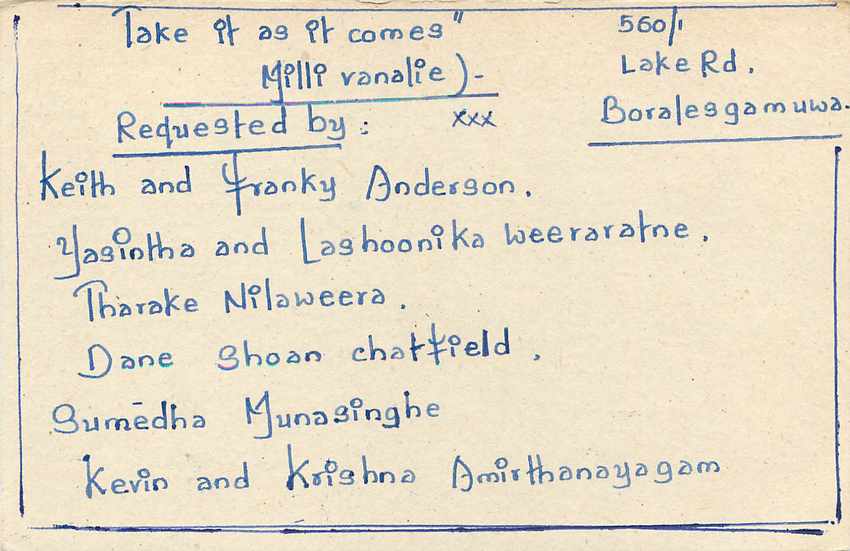 Take it as it comes"
Milli vanalie )-
560/1
Lake Rd,
Boralesgamuwa.
Requested by : xxx
Keith and Franky Anderson.
Yasintha and Lashoonika weeraratne.
Tharake Nilaweera.
Dane Shoan chatfield,
Sumēdha Munasinghe
Kevin and Krishna Amirthanayagam